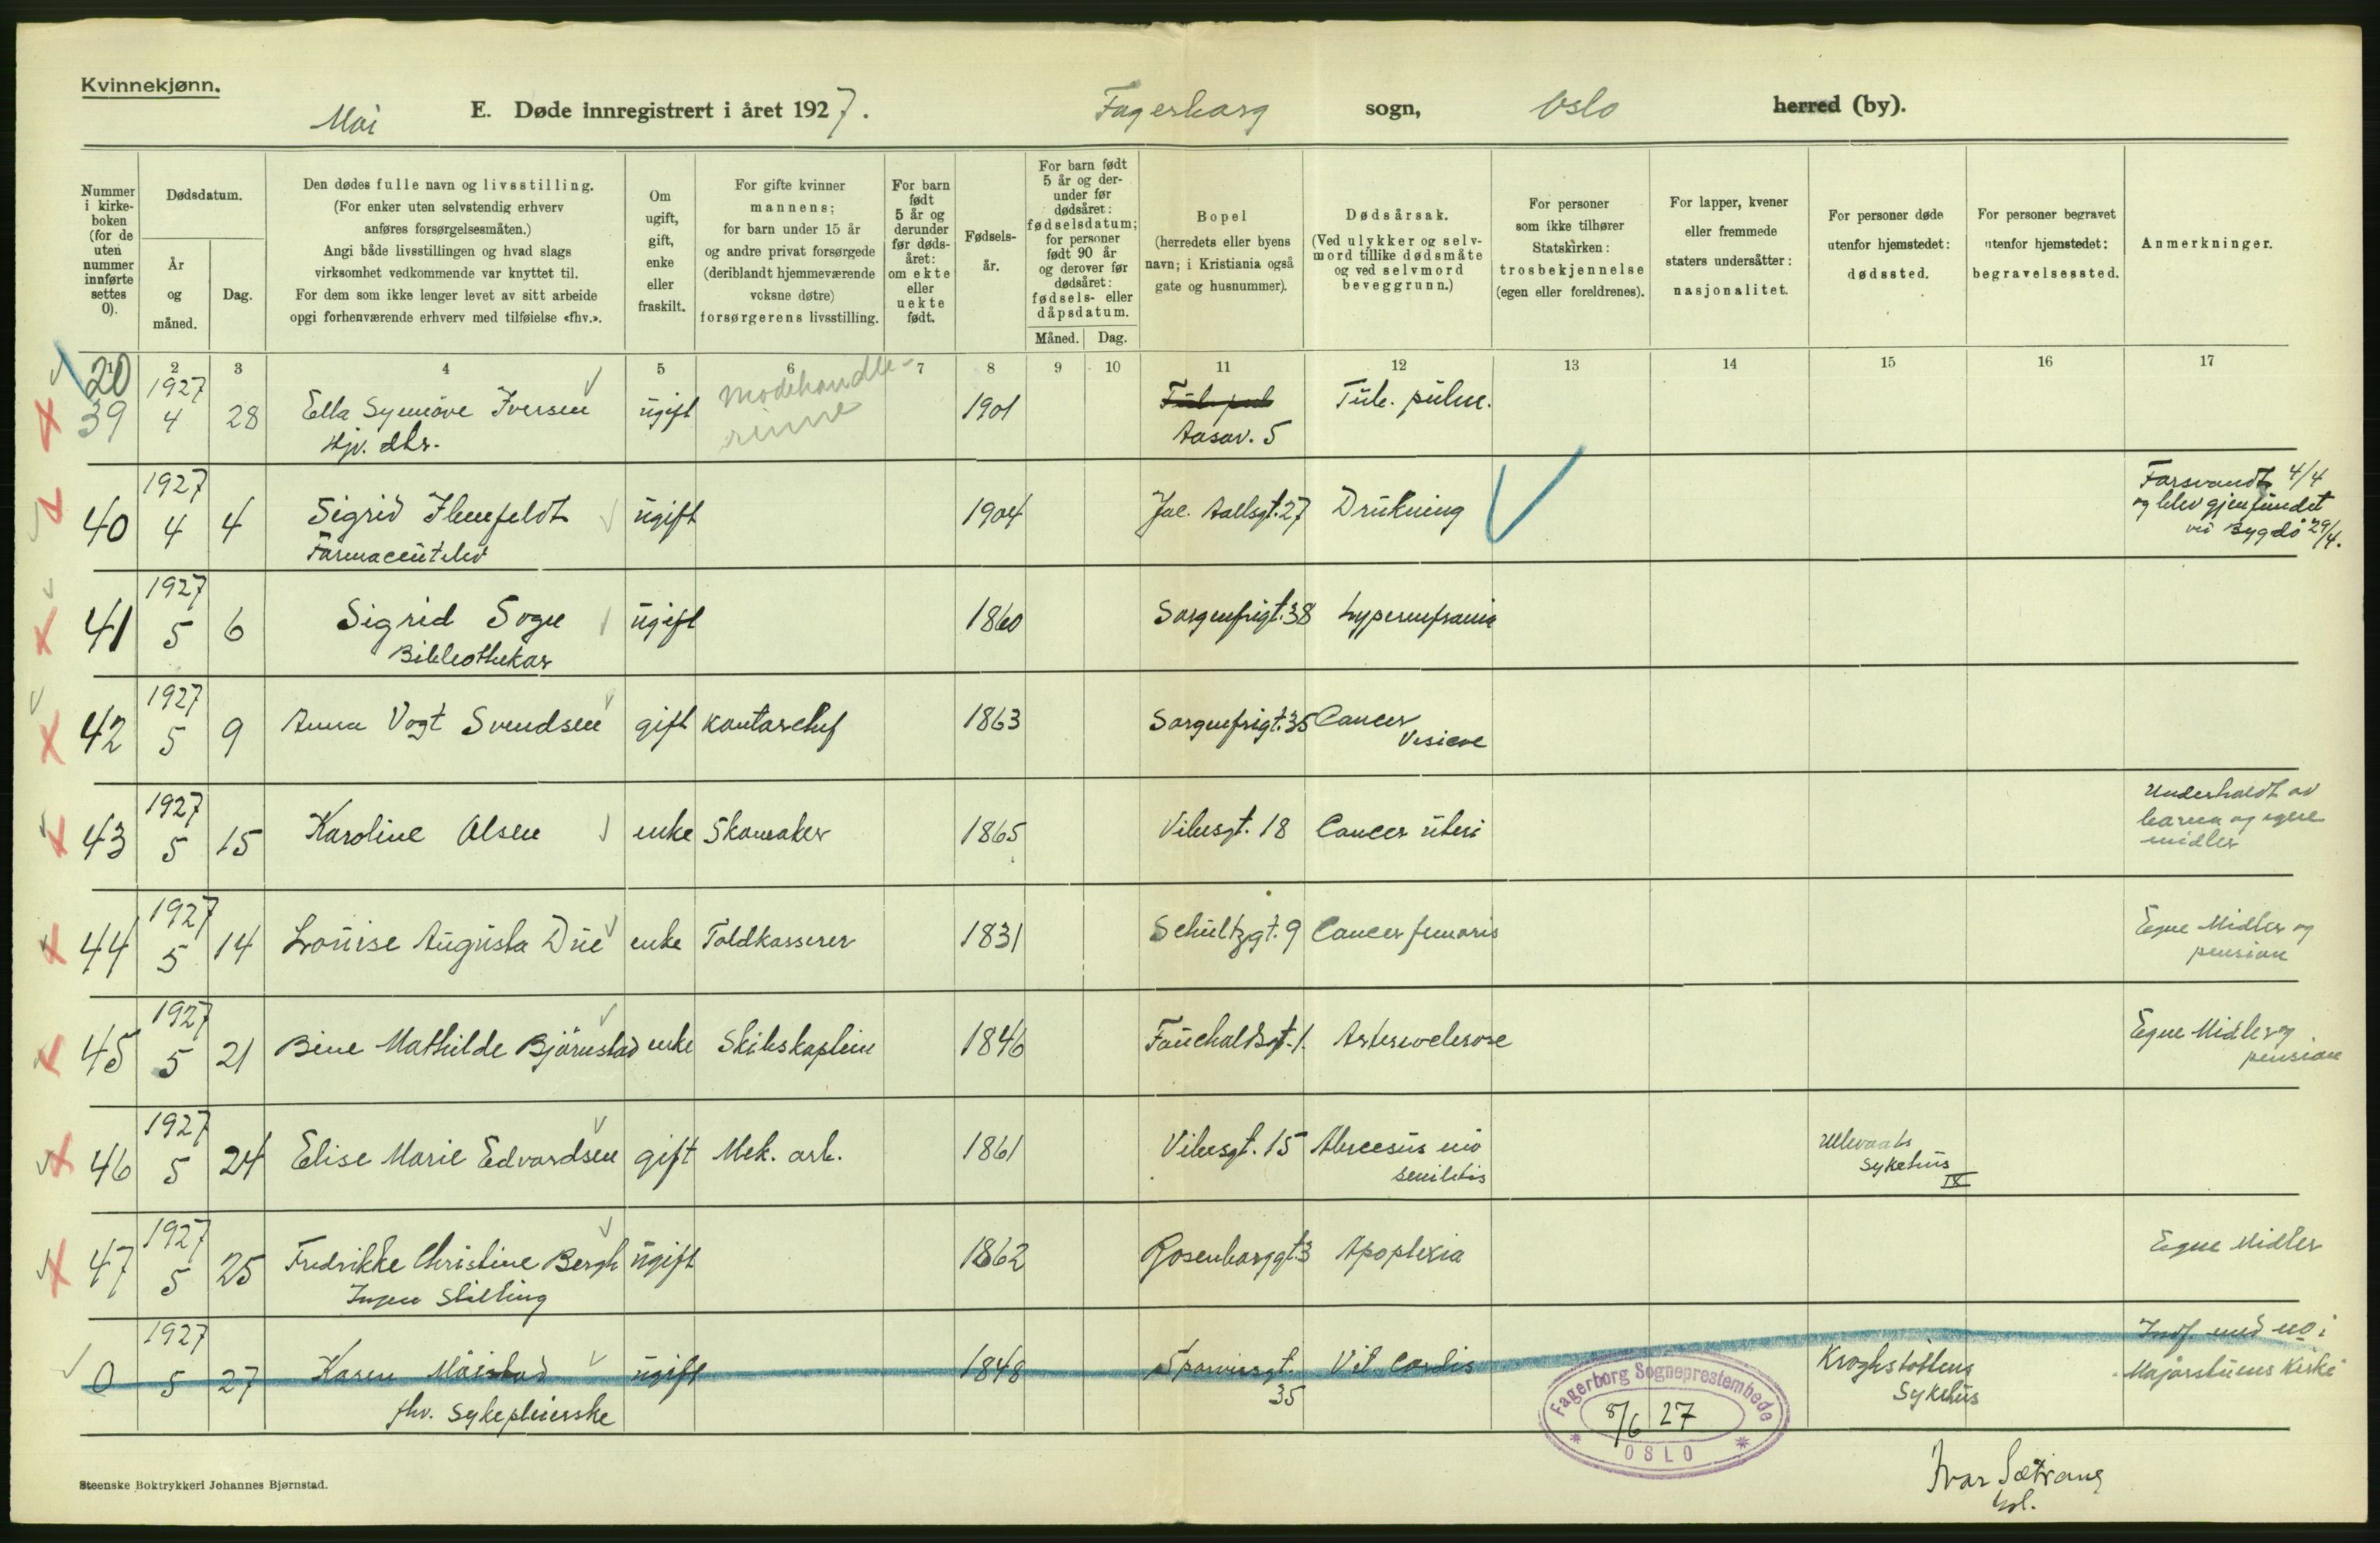 Kvinnekjønn.
Mai E. Døde innregistrert i året 1927. Fagerborg sogn, Oslo herred (by).
Nummer i kirke-boken (for de uten nummer innførte settes 0).
Dødsdatum.
År og måned.
Dag.
Den dødes fulle navn og livsstilling.
(For enker uten selvstendig erhverv
anføres forsørgelsesmåten.)
Angi både livsstillingen og hvad slags
virksomhet vedkommende var knyttet til.
For dem som ikke lenger levet av sitt arbeide
opgi forhenværende erhverv med tilføielse «fhv.».
Om
ugift,
gift,
enke
eller
fraskilt.
For gifte kvinner
mannens;
for barn under 15 år
og andre privat forsørgede
(deriblandt hjemmeværende
voksne døtre)
forsørgerens livsstilling.
For barn
født
5 år og
derunder
før døds-
året:
om ekte
eller
uekte
født.
Fødsels-
år.
For barn født
5 år og der-
under før
dødsåret:
fødselsdatum;
for personer
født 90 år
og derover før
dødsåret:
fødsels- eller
dåpsdatum.
Måned. Dag.
Bopel
(herredets eller byens
navn; i Kristiania også
gate og husnummer).
Dødsårsak.
(Ved ulykker og selv-
mord tillike dødsmåte
og ved selvmord
beveggrunn.)
For personer
som ikke tilhører
Statskirken:
trosbekjennelse
(egen eller foreldrenes).
For lapper, kvener
eller fremmede
staters undersåtter:
nasjonalitet.
For personer døde
utenfor hjemstedet:
dødssted.
For personer begravet
utenfor hjemstedet:
begravelsessted.
Anmerkninger.
1 2 3 4 5 6 7 8 9 10 11 12 13 14 15 16 17
20
39 1927 4 28 Ella Synnöve Iversen ugift Modehandle-
rinne 1901 Tub. pul Tub. pulm.
Hjv. dtr. Aasav. 5
40 1927 4 4 Sigrid Ihlenfeldt ugift 1904 Jac. Aallsgt. 27 Drukning Forsvandt 4/4
og blev gjenfundet
ved Bygdö 29/4.
Farmaceutelev
41 1927 5 6 Sigrid Sogn ugift 1860 Sorgenfrigt. 38
Bibliothekar
42 1927 5 9 Anna Vogt Svendsen gift kontorchef 1863 Sorgenfrigt. 35 Cancer
Vesicae
43 1927 5 15 Karoline Olsen enke Skomaker 1865 Vibesgt. 18 Cancer uteri Underholdt av
barna og egne
midler
44 1927 5 14 Louise Augusta Due enke Toldkasserer 1831 Schultzgt. 9 Cancer femoris Egne Midler og
pension
45 1927 5 21 Bine Mathilde Björnstad enke Skibskaptein 1846 Fauchaldsgt. 1. Egne Midler og
pension
46 1927 5 24 Elise Marie Edvardsen gift Mek. arb. 1861 Vibesgt. 15 Ullevaals
Sykehus
IX
47 1927 5 25 Fredrikke Christine Bergh ugift 1862 Rosenborggt. 3 Apoplexia Egne Midler
Ingen Stilling
0 1927 5 27 Karen ugift 1848 35 Vit. cordis Kroghstöttens
Sykehus Indf. med no i
Majorstuens Kirke
fhv. Sykepleierske
Fagerborg Sogneprestembede
8/6 27
OSLO
Steenske Boktrykkeri Johannes Bjørnstad.
Ivar Sætrang